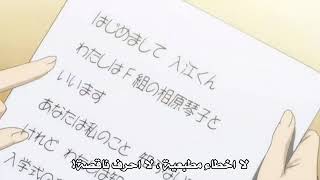 はじめまして 入江くん
わたしはF組の相原琴子と
いいます
あなたは私のこと
けれど わたしは
入学式の
لا اخطاء مطبعية ، لا احرف ناقصة!